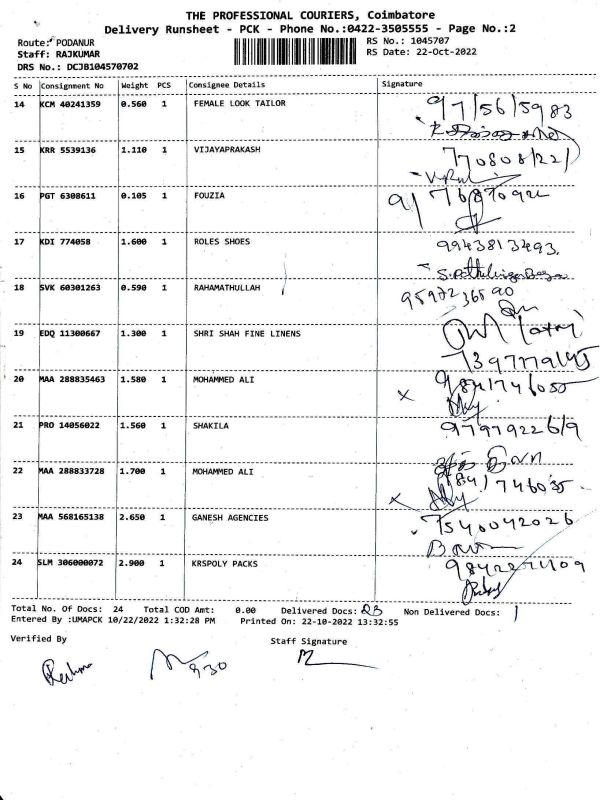 THE PROFESSIONAL COURIERS, Coimbatore
Delivery Runsheet - PCK - Phone No.:0422-3505555 - Page No.:2
Route: PODANUR
RS No.: 1045707
Staff: RAJKUMAR
RS Date: 22-Oct-2022
DRS No.: DCJB104570702
S No Consignment No Weight PCS Consignee Details Signature
14 KCM 40241359 0.560 1 FEMALE LOOK TAILOR 97/56/5983
15 KRR 5539136 1.110 1 VIJAYAPRAKASH
16 PGT 6308611 0.105 1 FOUZIA
17 KDI 774058 1.600 1 ROLES SHOES 9943813493.
18 SVK 60301263 0.590 1 RAHAMATHULLAH
19 EDQ 11300667 1.300 1 SHRI SHAH FINE LINENS
20 MAA 288835463 1.580 1 MOHAMMED ALI
21 PRO 14056022 1.560 1 SHAKILA
22 MAA 288833728 1.700 1 MOHAMMED ALI
23 MAA 568165138 2.650 1 GANESH AGENCIES 7540042026
24 SLM 306000072 2.900 1 KRSPOLY PACKS
Total No. Of Docs: 24 Total COD Amt: 0.00 Delivered Docs: Non Delivered Docs: 1
Entered By :UMAPCK 10/22/2022 1:32:28 PM Printed On: 22-10-2022 13:32:55
Verified By Staff Signature
930